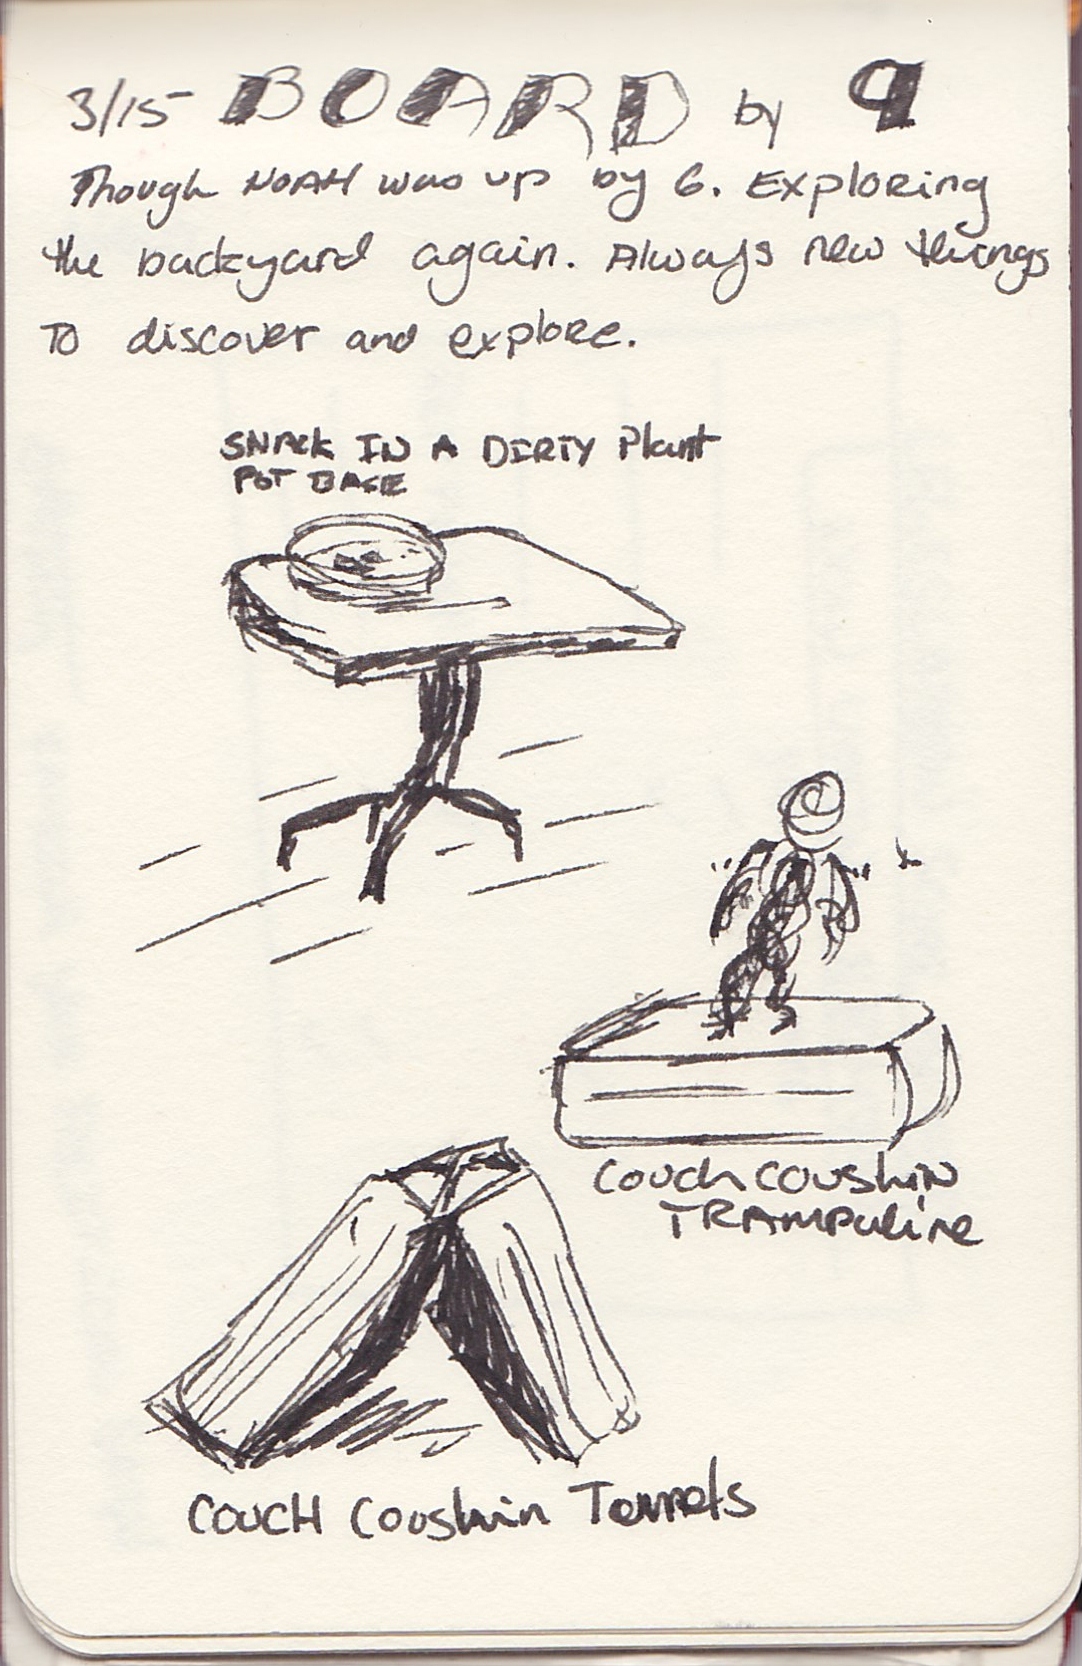 3/15 BOARD by 9
Though NOAH was up by 6. Exploring
the backyard again. Always new things
To discover and explore.
SNACK IN A DIRTY Plant
POT BASE
Couch coushin
TRAMPULINE
COUCH Coushin Tunnels